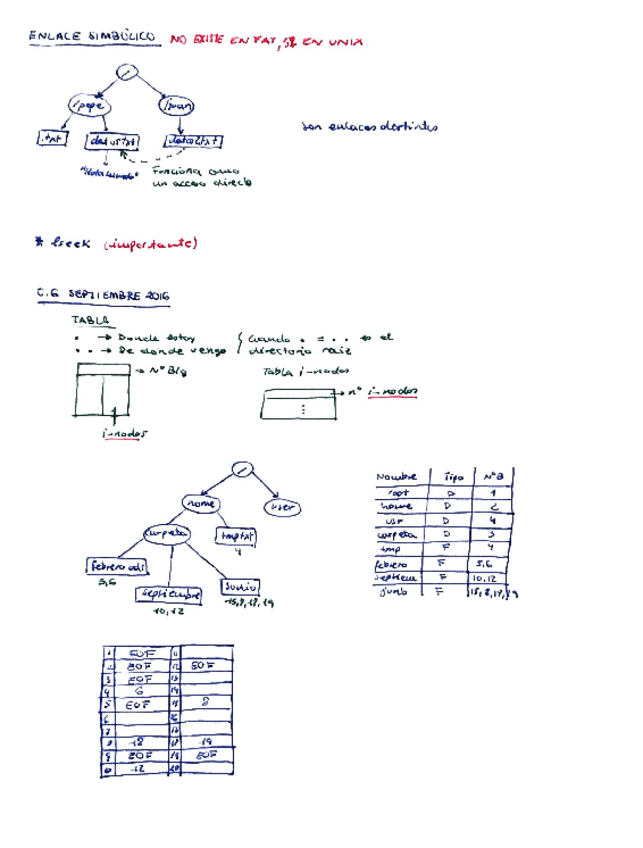 ENLACE SIMBÓLICO NO EXISTE EN FAT, SÍ EN UNIX
/
/pepe /juan
.txt datos1txt datos2txt
Funciona como
un acceso directo
son enlaces distintos
* lseek (importante)
C.6 SEPTIEMBRE 2016
TABLA
. → Donde estoy
. . → De donde vengo
Cuando . = . . es el
directorio raiz
→ Nº Blq
i-nodos
Tabla i-nodos
→ nº i-nodos
/
home user
carpeta tmptxt
4
febrero.odt
5,6
septiembre
10,12
Junio
15,8,18,19
Nombre Tipo NºB
root D 1
home D 2
usr D 4
carpeta D 3
tmp F 4
febrero F 5,6
septiem F 10,12
junio F 15,8,18,19
1 EOF 11
2 EOF 12 EOF
3 EOF 13
4 6 14
5 EOF 15 8
6 16
7 17
8 18 18 19
9 EOF 19 EOF
10 12 20